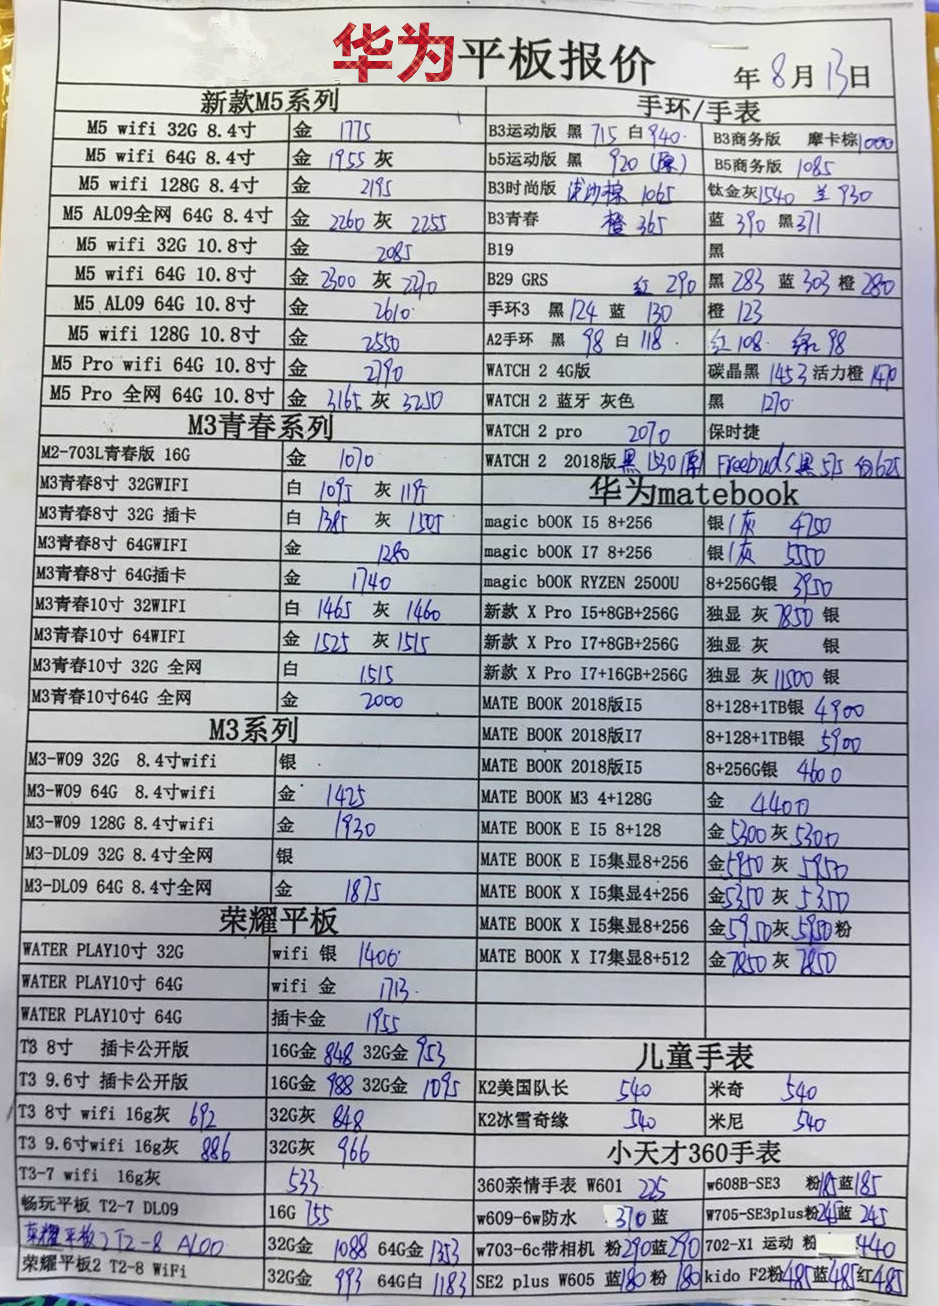 华为平板报价 年8月13日
新款M5系列
M5 wifi 32G 8.4寸 金 1775
M5 wifi 64G 8.4寸 金 1955 灰
M5 wifi 128G 8.4寸 金 2195
M5 AL09全网 64G 8.4寸 金 2260 灰 2255
M5 wifi 32G 10.8寸 金 2085
M5 wifi 64G 10.8寸 金 2300 灰 2270
M5 AL09 64G 10.8寸 金 2610
M5 wifi 128G 10.8寸 金 2550
M5 Pro wifi 64G 10.8寸 金 2790
M5 Pro 全网 64G 10.8寸 金 3165 灰 3250
M3青春系列
M2-703L青春版 16G 金 1070
M3青春8寸 32GWIFI 白 1095 灰 1195
M3青春8寸 32G 插卡 白 1385 灰 1505
M3青春8寸 64GWIFI 金 1280
M3青春8寸 64G插卡 金 1740
M3青春10寸 32WIFI 白 1465 灰 1460
M3青春10寸 64WIFI 金 1525 灰 1515
M3青春10寸 32G 全网 白 1515
M3青春10寸64G 全网 金 2000
M3系列
M3-W09 32G 8.4寸wifi 银
M3-W09 64G 8.4寸wifi 金 1425
M3-W09 128G 8.4寸wifi 金 1930
M3-DL09 32G 8.4寸全网 银
M3-DL09 64G 8.4寸全网 金 1875
荣耀平板
WATER PLAY10寸 32G wifi 银 1406
WATER PLAY10寸 64G wifi 金 1713
WATER PLAY10寸 64G 插卡金 1955
T3 8寸 插卡公开版 16G金 848 32G金 953
T3 9.6寸 插卡公开版 16G金 988 32G金 1095
T3 8寸 wifi 16g灰 692 32G灰 848
T3 9.6寸wifi 16g灰 886 32G灰 966
T3-7 wifi 16g灰 533
畅玩平板 T2-7 DL09 16G 755
荣耀平板2 T2-8 AL00 32G金 1088 64G金 1353
荣耀平板2 T2-8 WiFi 32G金 993 64G白 1183
手环/手表
B3运动版 黑 715 白 940 B3商务版 摩卡棕 1000
b5运动版 黑 920 (原) B5商务版 1085
B3时尚版 1065 钛金灰 1540 兰 930
B3青春 橙 365 蓝 390 黑 371
B19 黑
B29 GRS 红 290 黑 283 蓝 303 橙 280
手环3 黑 124 蓝 130 橙 123
A2手环 黑 98 白 118 红 108 绿 98
WATCH 2 4G版 碳晶黑 1453 活力橙 1470
WATCH 2 蓝牙 灰色 黑 1270
WATCH 2 pro 2070 保时捷
WATCH 2 2018版 黑 1530 (原) Freebuds 黑 575 白 625
华为matebook
magic bOOK I5 8+256 银/灰 4750
magic bOOK I7 8+256 银/灰 5550
magic bOOK RYZEN 2500U 8+256G银 3950
新款 X Pro I5+8GB+256G 独显 灰 7850 银
新款 X Pro I7+8GB+256G 独显 灰 银
新款 X Pro I7+16GB+256G 独显 灰 11500 银
MATE BOOK 2018版I5 8+128+1TB银 4900
MATE BOOK 2018版I7 8+128+1TB银 5900
MATE BOOK 2018版I5 8+256G银 4600
MATE BOOK M3 4+128G 金 4400
MATE BOOK E I5 8+128 金 5300 灰 5300
MATE BOOK E I5集显8+256 金 5950 灰 5950
MATE BOOK X I5集显4+256 金 5350 灰 5350
MATE BOOK X I5集显8+256 金 5950 灰 5950 粉
MATE BOOK X I7集显8+512 金 7850 灰 7850
儿童手表
K2美国队长 540 米奇 540
K2冰雪奇缘 540 米尼 540
小天才360手表
360亲情手表 W601 225 w608B-SE3 粉 185 蓝 185
w609-6w防水 370 蓝 W705-SE3plus粉 245 蓝 245
w703-6c带相机 粉 290 蓝 290 702-X1 运动 粉 440
SE2 plus W605 蓝 180 粉 180 kido F2粉 485 蓝 485 红 485